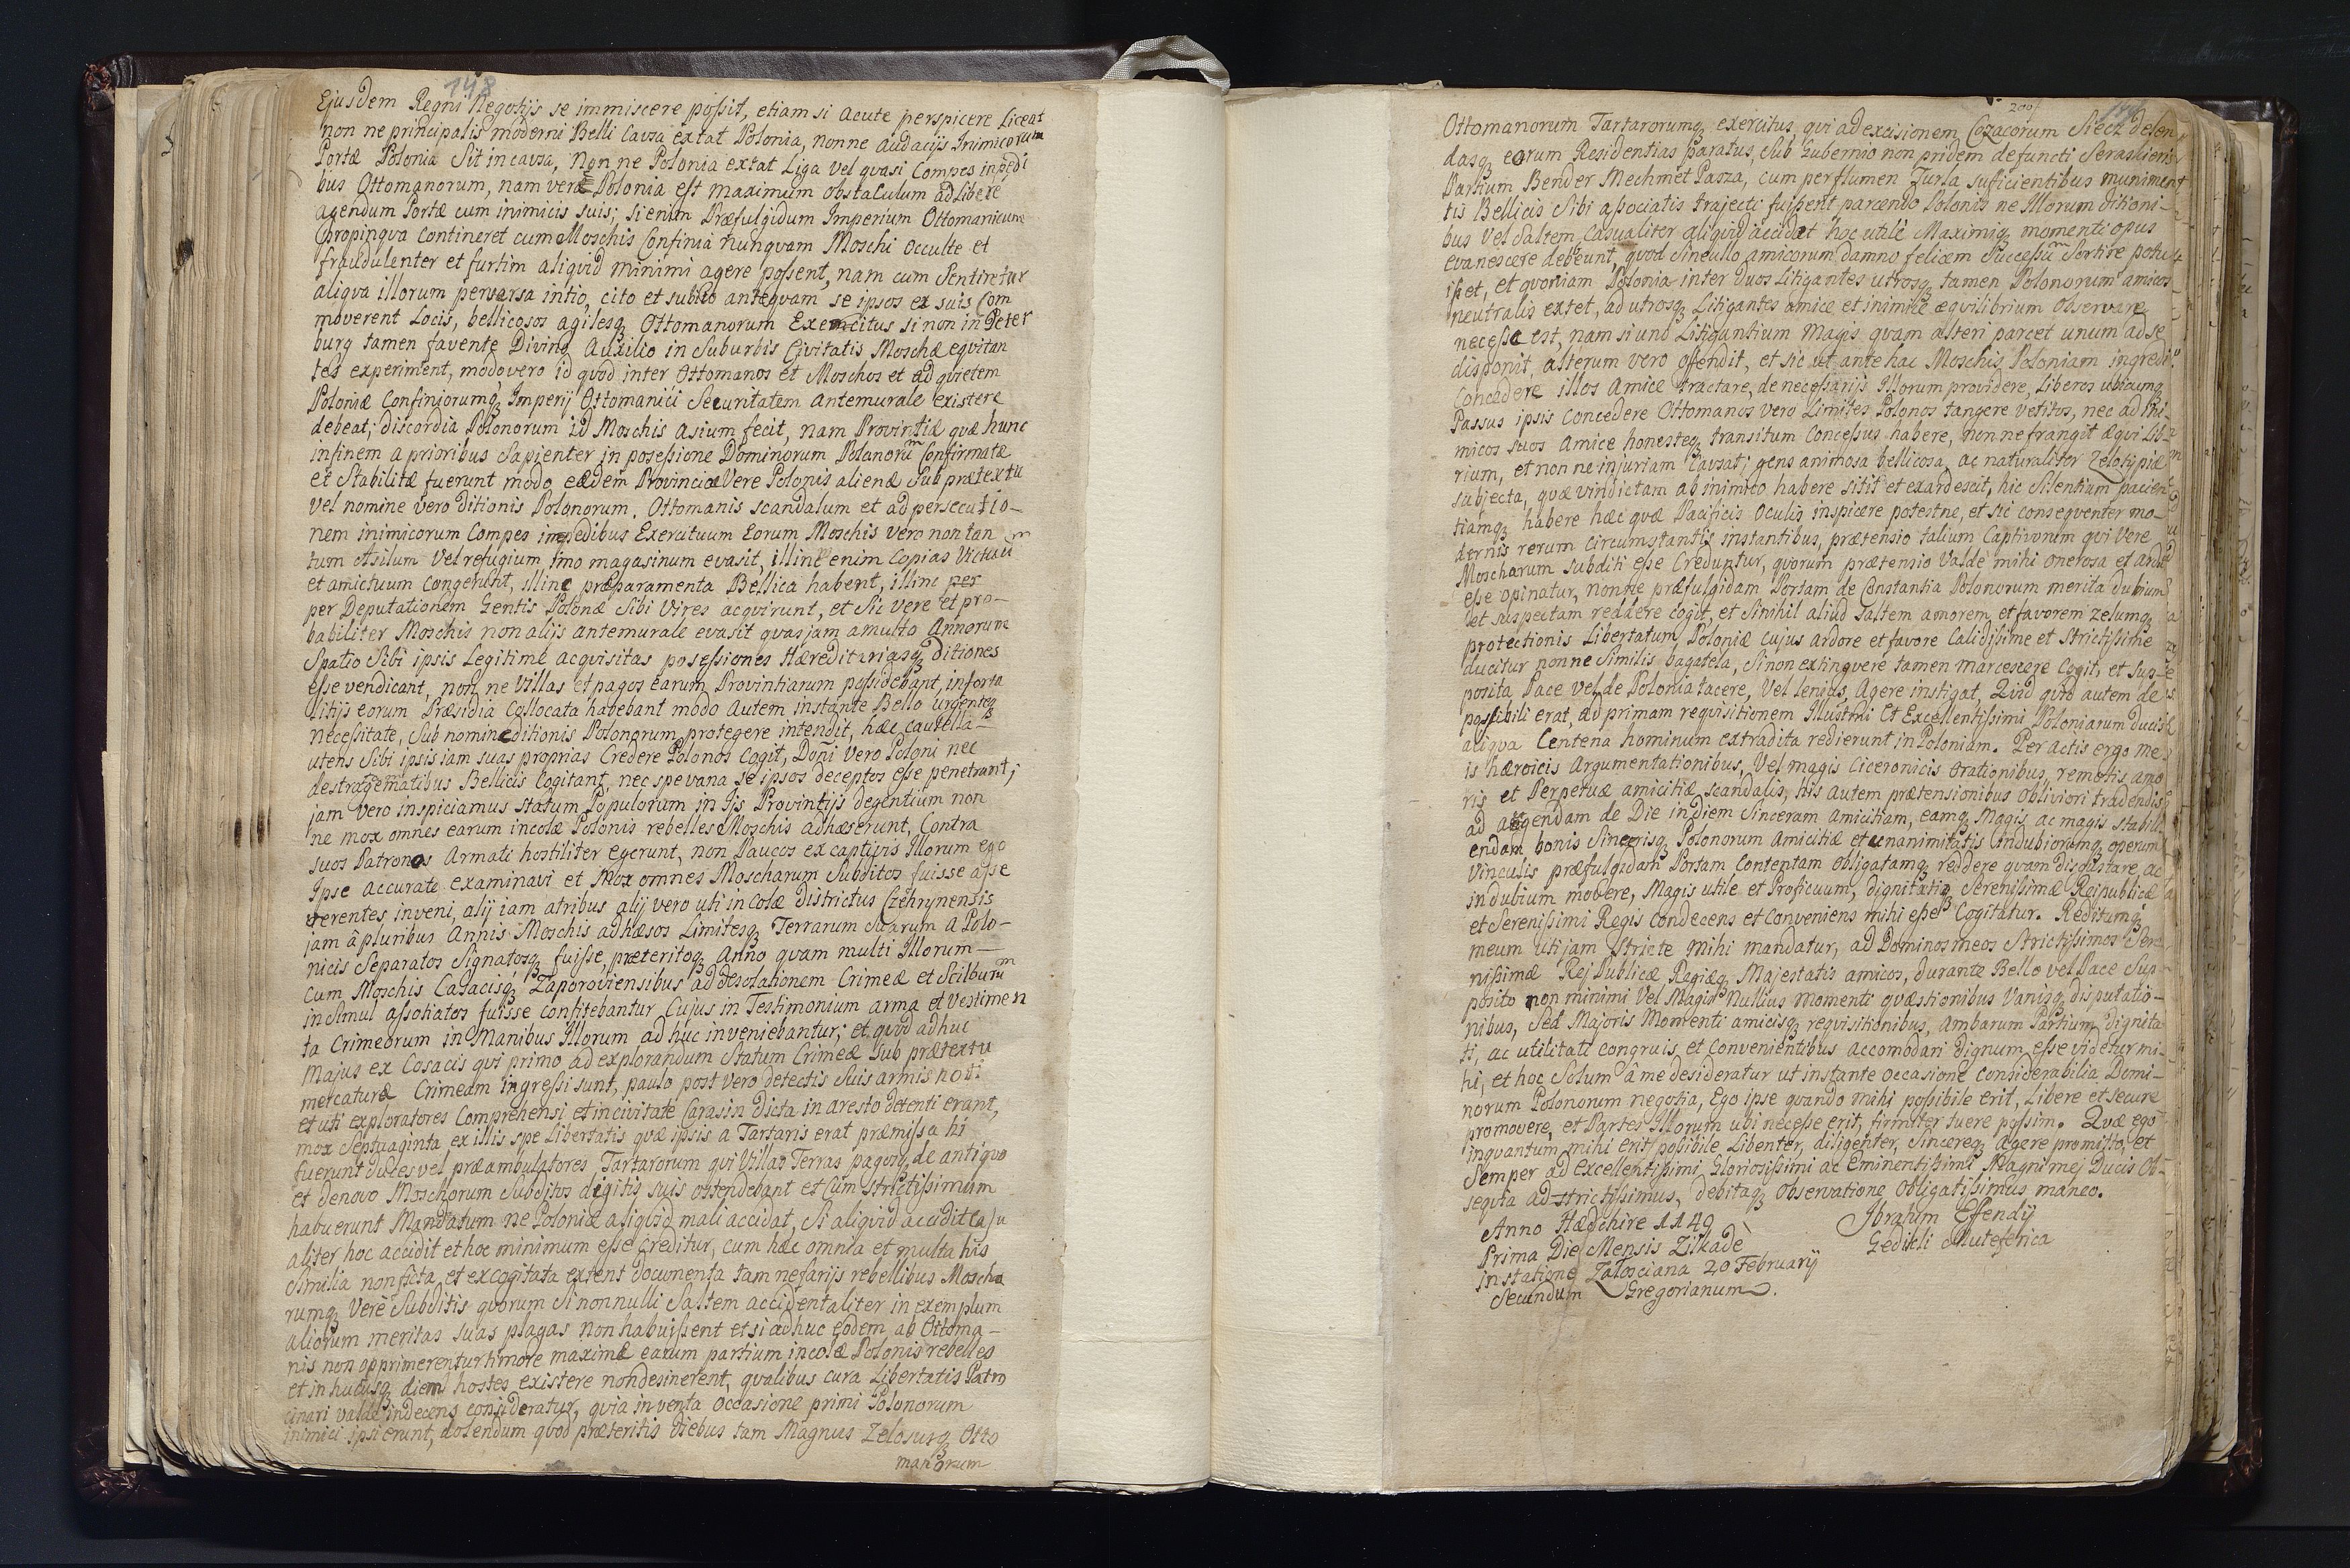 148
Ejusdem Regni Negotijs se immiscere possit, etiam si acute perspicere Liceat
non ne principalis moderni Belli Causa extat Polonia, nonne audacijs Inimicorum
Portæ Polonia Sit in causa, Non ne Polonia extat Liga vel quasi Compes in pedi
bus Ottomanorum, nam vere Polonia est maximum obstaculum ad Libere
agendum Portæ cum inimicis suis; si enim Præfulgidum Imperium Ottomanicum
propinqva contineret cum Moschis Confinia nunqvam Moschi occulte et
fraudulenter et furtim aliqvid minimi agere possent, nam cum Sentiretur
aliqva illorum perversa intio, cito et subito anteqvam se ipsos ex suis Com
moverent Locis, bellicosos agilesq Ottomanorum Exercitus si non in Peter
burg tamen favente Divino Auxilio in Suburbis Civitatis Moschæ eqvitan
tes experiment, modo vero id qvod inter Ottomanos et Moschos et ad qvietem
Poloniæ Confiniorumq Imperij Ottomanici Securitatem antemurale existere
debeat; discordia Polonorum id Moschis asium fecit, nam Provintiæ qvæ hunc
in finem a prioribus Sapienter in posessione Dominorum Polanorum Confirmatæ
et Stabilitæ fuerunt modo eædem Provinciæ Vere Polonis alienæ Sub prætextu
vel nomine vero ditionis Polonorum. Ottomanis scandalum et ad persecutio-
nem inimicorum Compes in pedibus Exercituum Eorum Moschis vero non tan
tum Asilum vel refugium imo magasinum evasit, illinc enim Copias Victuum
et amictuum congerunt, illinc præparamenta Bellica habent, illinc per
per Deputationem Gentis Polonæ Sibi Vires acqvirunt, et Sic vere et pro-
babiliter Moschis non alijs antemurale evasit qvas jam a multo Annorum
Spatio Sibi ipsis Legitime acqvisitas posessiones Hæreditariasq ditiones
esse vendicant, non ne Villas et pagos earum Provintiarum possidebant, in forta
litijs eorum Præsidia Collocata habebant modo Autem instante Bello urgenteq
necessitate, Sub nomine ditionis Polonorum protegere intendit, hæc cautella-
utens Sibi ipsis iam suas proprias Credere Polonos Cogit, Doñi vero Poloni nec
de stratagematibus Bellicis Cogitant, nec spe vana se ipsos deceptos esse penetrant;
jam vero inspiciamus statum Populorum in Ijs Provintijs degentium non
ne mox omnes earum incolæ Polonis rebelles Moschis adhæserunt, Contra
suos Patronos Armati hostiliter egerunt, non Paucos ex captivis Illorum ego
Ipse accurate examinavi et Mox omnes Moscharum Subditos fuisse asse
verentes inveni, alij iam atribus alij vero uti in Colæ districtus Czehrynensis
jam â pluribus Annis Moschis adhæsos Limitesq Terrarum Suarum a Polo-
nicis Separatos Signatosq fuisse, præteritoq Anno qvam multi Illorum-
cum Moschis Casacisq Zaporoviensibus ad desolationem Crimeæ et Kilburum
in Simul assotiatos fuisse confitebantur Cujus in Testimonium arma et Vestimen
ta Crimeorum in Manibus Illorum ad huc inveniebantur; et qvod adhuc
Majus ex Cosacis qvi primo ad explorandum Statum Crimeæ Sub prætextu
mercaturæ Crimeam ingressi sunt, paulo post vero detectis Suis armis noti
et uti exploratores Comprehensi et in civitate Carasin dicta in aresto detenti erant,
mox Septuaginta ex illis spe Libertatis qvæ ipsis a Tartaris erat præmissa hi
fuerunt duces vel præambulatores Tartarorum qvi Villas Terras pagosq de antiqvo
et denovo Moschorum Subditos digitis suis ostendebant et Cum strictissimum
habuerunt Mandatum ne Poloniæ aliqvid mali accidat, Si aliqvid accidit casu
aliter hoc accidit et hoc minimum esse creditur, cum hæc omnia et multa his
Similia non ficta et excogitata extent documenta tam nefarijs rebellibus Moscho
rumq Vere Subditis qvorum Si nonnulli Saltem accidentaliter in exemplum
aliorum meritas suas plagas non habuissent et si adhuc eodem ab Ottoma-
nis non opprimerentur timore maxime earum partium incolæ Polonis rebelles
et in hucusq diem hostes existere non desinerent, qvalibus cura Libertatis Patro
cinari valde indecens consideratur, qvia inventa occasione primi Polonorum
inimici ipsi erunt, dolendum qvod præteritis diebus tam Magnus Zelosusq Otto
manorum
200
Ottomanorum Tartarorumq exercitus, qvi ad excisionem Cozacorum Siecz delen
dasq earum Residentias paratus, Sub Gubernio non pridem defuncti Seraskieris
Partium Bender Mechmet Pasza, cum per flumen Turla suficientibus muniment
tis Bellicis Sibi associatis trajecti fuissent parcendo Polonis ne Illorum ditioni-
bus Vel Saltem Casualiter aliqvid accidat hoc utile Maximiq momenti opus
evanescere debeunt, qvod Sine ullo amicorum damno felicem Successum Sortire potu
isset, et qvoniam Polonia inter duos Litigantes utrosq tamen Polonorum amicos
neutralis extet, ad utrosq Litigantes amice et inimice æqvilibrium observare
necesse est, nam si uno Litigantium Magis qvam alteri parcet unum ad se
disponit, alterum vero offendit, et sic ut ante hac Moschis Poloniam ingredi
Concedere illos Amice tractare, de necessarijs Illorum providere, Liberos ubicumq
Passus ipsis Concedere Ottomanos vero Limites Polonos tangere vetitos, nec ad ini-
micos suos Amice honesteq transitum Concessus habere, non ne frangit æqvilib-
rium, et non ne injuriam Causat; gens animosa bellicosa, ac naturaliter Zelotipiæ
subjecta, qvæ vindictam ab inimico habere sitit et exardescit, hic Silentium pacien
tiamq habere hæc qvæ Pacificis Oculis inspicere potestne, et sic conseqventer mo-
dernis rerum Circumstantis instantibus, prætensio talium Captivorum qvi Vere
Moscharum Subditi esse Creduntur, qvorum prætensio Valde mihi onerosa et ardu
esse opinatur, nonne præfulgidam Portam de Constantia Polonorum merita dubium
et suspectam reddere cogit, et Si nihil aliud Saltem amorem et favorem zelumq
protectionis Libertatum Poloniæ cujus ardore et favore Calidissime et Strictissime
ducitur nonne Similis bagatela, Si non extingvere tamen marcescere Cogit, et Sup-
posita Pace vel de Polonia tacere, Vel lenius Agere instigat, Qvid qvod autem de
possibili erat, ad primam reqvisitionem Illustrmi Et Excellentissimi Poloniarum Ducis
aliqva Centena hominum extradita redierunt in Poloniam. Per actis ergo me
is hæroicis Argumentationibus, Vel magis Ciceronicis Orationibus, remotis amo
ris et Perpetuæ amicitiæ Scandalis, his Autem prætensionibus Oblivioni tradendis
ad augendam de Die in diem Sinceram Amicitiam, eamq Magis ac magis stabili
endam bonis Sincerisq Polonorum Amicitiæ et unanimitatis indubiorumq operum
Vinculis præfulgidam Portam Contentam Obligatamq reddere qvam disgustare, ac
in dubium movere, Magis utile et Proficuum, dignitatiq Serenissimæ Reipublicæ
et Serenissimi Regis Condecens et Conveniens mihi esse Cogitatur. Reditumq
meum uti jam Stricte mihi mandatur, ad Dominos meos Strictissimos Sere
nissimæ Rej Publicæ Regiæq Majestatis amicos, durante Bello vel Pace Sup-
posito non minimi Vel Magis Nullius momenti qvæstionibus Vanisq disputatio-
nibus, Sed Majoris Momenti amicisq reqvisitionibus, Ambarum Partium dignita
ti, ac utilitati congruis et Convenientibus accomodari dignum esse videtur mi-
hi, et hoc Solum â me desideratur ut instante occasione considerabilia Domi-
norum Polonorum negotia, Ego ipse qvando mihi possibile erit, Libere et secure
promovere, et Partes Illorum ubi necesse erit, firmiter tuere possim. Qvæ ego
inqvantum mihi erit possibile Libenter, diligenter, Sincereq agere promitto, et
Semper ad Excellentissimi Gloriosissimi ac Eminentissimi Magni mej Ducis Ob-
seqvia ad-strictissimus, debitaq Observatione Obligatissimus maneo.
Anno Hædchire 1149
Prima Die Mensis Zilkade
in statione Zalosciana 20 Februarij
Secundum Gregorianum.
Ibrahim Effendij
Gedikli Muteferica